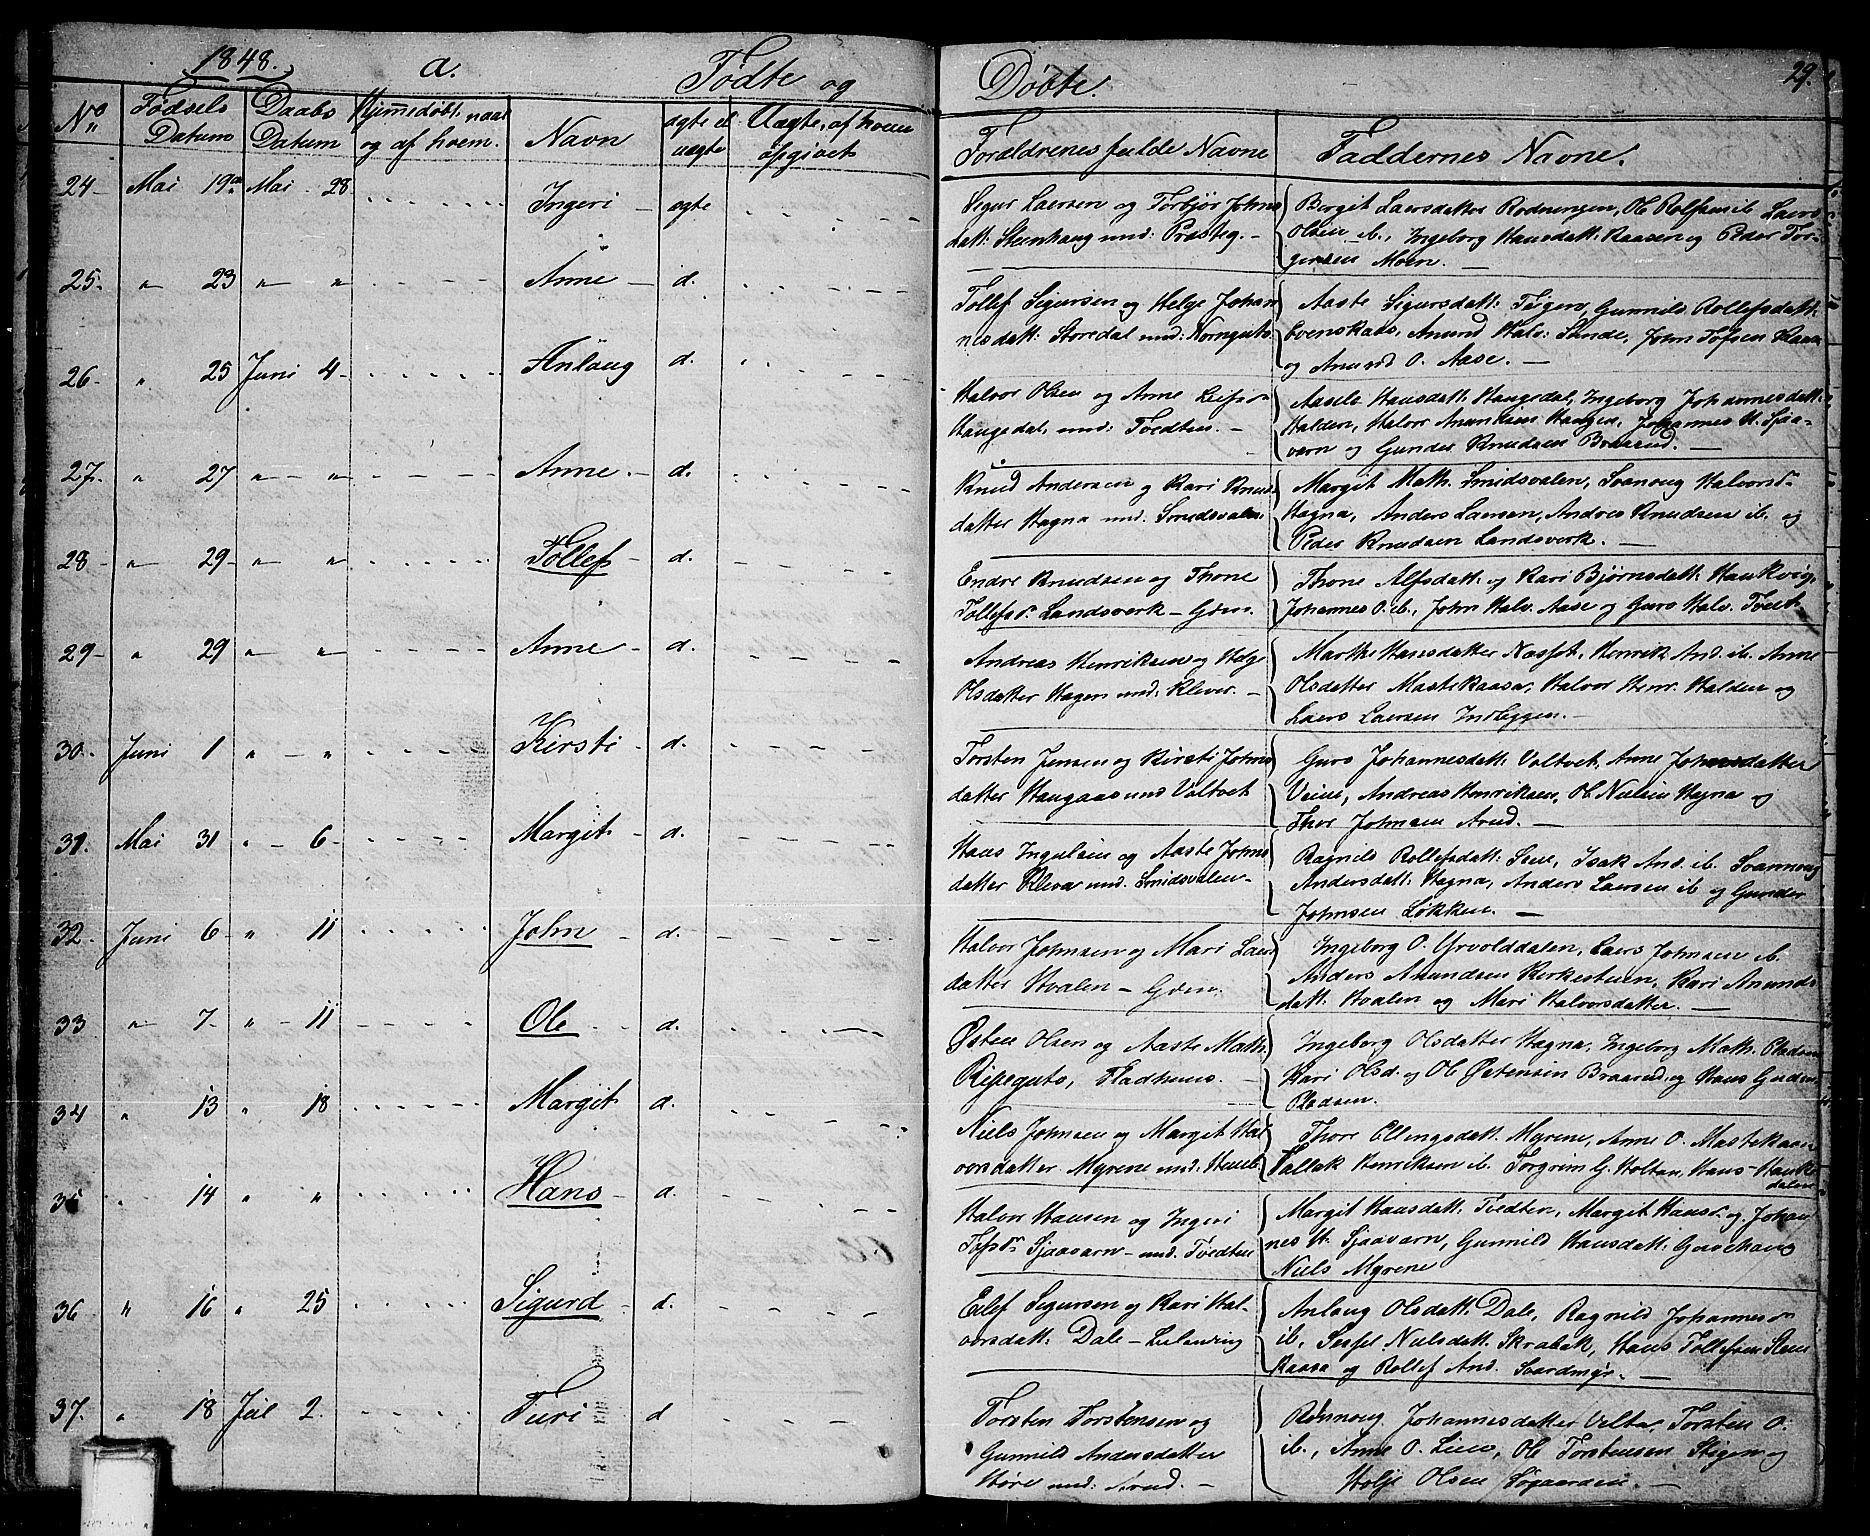 1848. a. Fødte og Døbte. 29.
No Fødsels Datum Daabs Datum Hjemmedøbt, naar og af hvem. Navn ægte el uægte Uægte, af hvem opgivet Forældrenes fulde Navne Faddernes Navne.
24 Mai 19de Mai 28 Ingeri ægte
Sigur Laersen og Torbjør Johns
datt: Steenhaug und: Præsteg.
Birgit Laersdatter Rodningen, Ole Rolfsen ib. Laers
Olsen ib., Ingeborg Hansdatt: Kaasen og Peder Tor-
gersen Moen.
25. " 23 " " Anne d.
Tollef Sigursen og Helge Johan
nesdatt: Storedal und:
Aaste Sigursdatt: Teigen, Gunnild Rollefsdatt:
Evenskaas, Amund Halv: Sunde, John Tofsen
og Amund O. Aase.
26. " 25 Juni 4 Anlaug d.
Halvor Olsen og Anne Leifsdr
Haugedal, und: Tvedten.
Aasele Hansdatt: Haugedal, Ingeborg Johannesdatt:
Halden, Halvor Haugen, Johannes H. Sjaa-
varn og Gunder Knudsen Braarud.
27. " 27 " " Anne d.
Knud Andersen og Kari Knuds
datter Hagna und. Smedsvalen
Margit Math. Smidsvalen, Svanaug Halvorsdr
Hagna, Anders Laersen, Andrea Knudsen ib. og
Peder Knudsen Landsverk.
28 " 29 " " Tollef d.
Endre Knudsen og Thone
Tollefsdr Landsverk – Gden.
Thone Alfsdatt: og Kari Bjørnsdatt: Haukvig,
Johannes O. ib., John Halv. Aase og Guro Halv. Tvedt.
29 " 29 " " Anne d.
Andreas Henriksen og Helge
Olsdatter Hagen und: Klever.
Marthe Hansdatter Næsset, Henrik And. ib. Anne
Olsdatter Mastekaasa, Halvor Henr. Halden og
Laers Laersen Indleggen.
30. Juni 1 " " Kirsti d.
Torsten Jensen og Kirsti Johns
datter Haugaas und Valtvet
Guro Johannesdatt: Valtvet, Anne Johnsdatter
Veine, Andreas Henriksen, Ole Nielsen Hagna og
Thor Johnsen Arud.
31. Mai 31 " 6 Margit d.
Hans Ingulsen og Aaste Johns
datter Kleva und. Smidsvalen
Ragnild Rollefsdatt: Stene, Isak And. ib. Svannoug
Andersdatt: Hagna, Anders Laersen ib og Gunder
Johnsen Løkken.
32. Juni 6 " 11 John d.
Halvor Johnsen og Mari Laers
datter Hvalen – Gden.
Ingeborg O. Yrvolddalen, Laers Johnsen ib.
Anders Amundsen Kirkesteien, Kari Amunds
datt: Hvalen og Mari Halvorsdatter.
33 " 7 " 11 Ole d.
Østen Olsen og Aaste Math.
Ripeguto, Fladhuus.
Ingeborg Olsdatter Hagna, Ingeborg Math. Pladsen
Kari Olsd. og Ole Østensen Braarud, og Hans Gunders
Pladsen.
34 " 13 " 18 Margit d.
Niels Johnsen og Margit Hal
vorsdatter Myrene und:
Thore Ellingsdatt. Myrene, Anne O. Mastekaasa
Tallak Henriksen ib. Torgrim G. Holtan, Hans Hauk-
dalen
35 " 14 " " Hans d.
Halvor Hansen og Ingeri
Tofsdr Sjaavarn – und: Tvedten
Margit Hansdatt: Tvedten, Margit Hansdr og Johan
nes H. Sjaavarn, Gunnild Hansdatt:
Niels Myrene
36 " 16 " 25 Sigurd d.
Eilef Sigursen og Kari Hal-
vorsdatt: Dale –
Anlaug Olsdatt: Dale, Ragnild Johannesdr
ib., Sessel Nielsdatt: Skrabak, Hans Tollefsen Steen
Kaasa og Rollef And. Svardmyr.
37. " 18 Jul 2 Turi d
Torsten Torstensen og
Gunnild Andersdatter
Høre und: Arud.
Rønnoug Johannesdatter Velta, Torsten O.
ib., Anne O. Lien, Ole Torstensen Stigen og
Holje Olsen Søgaarden.